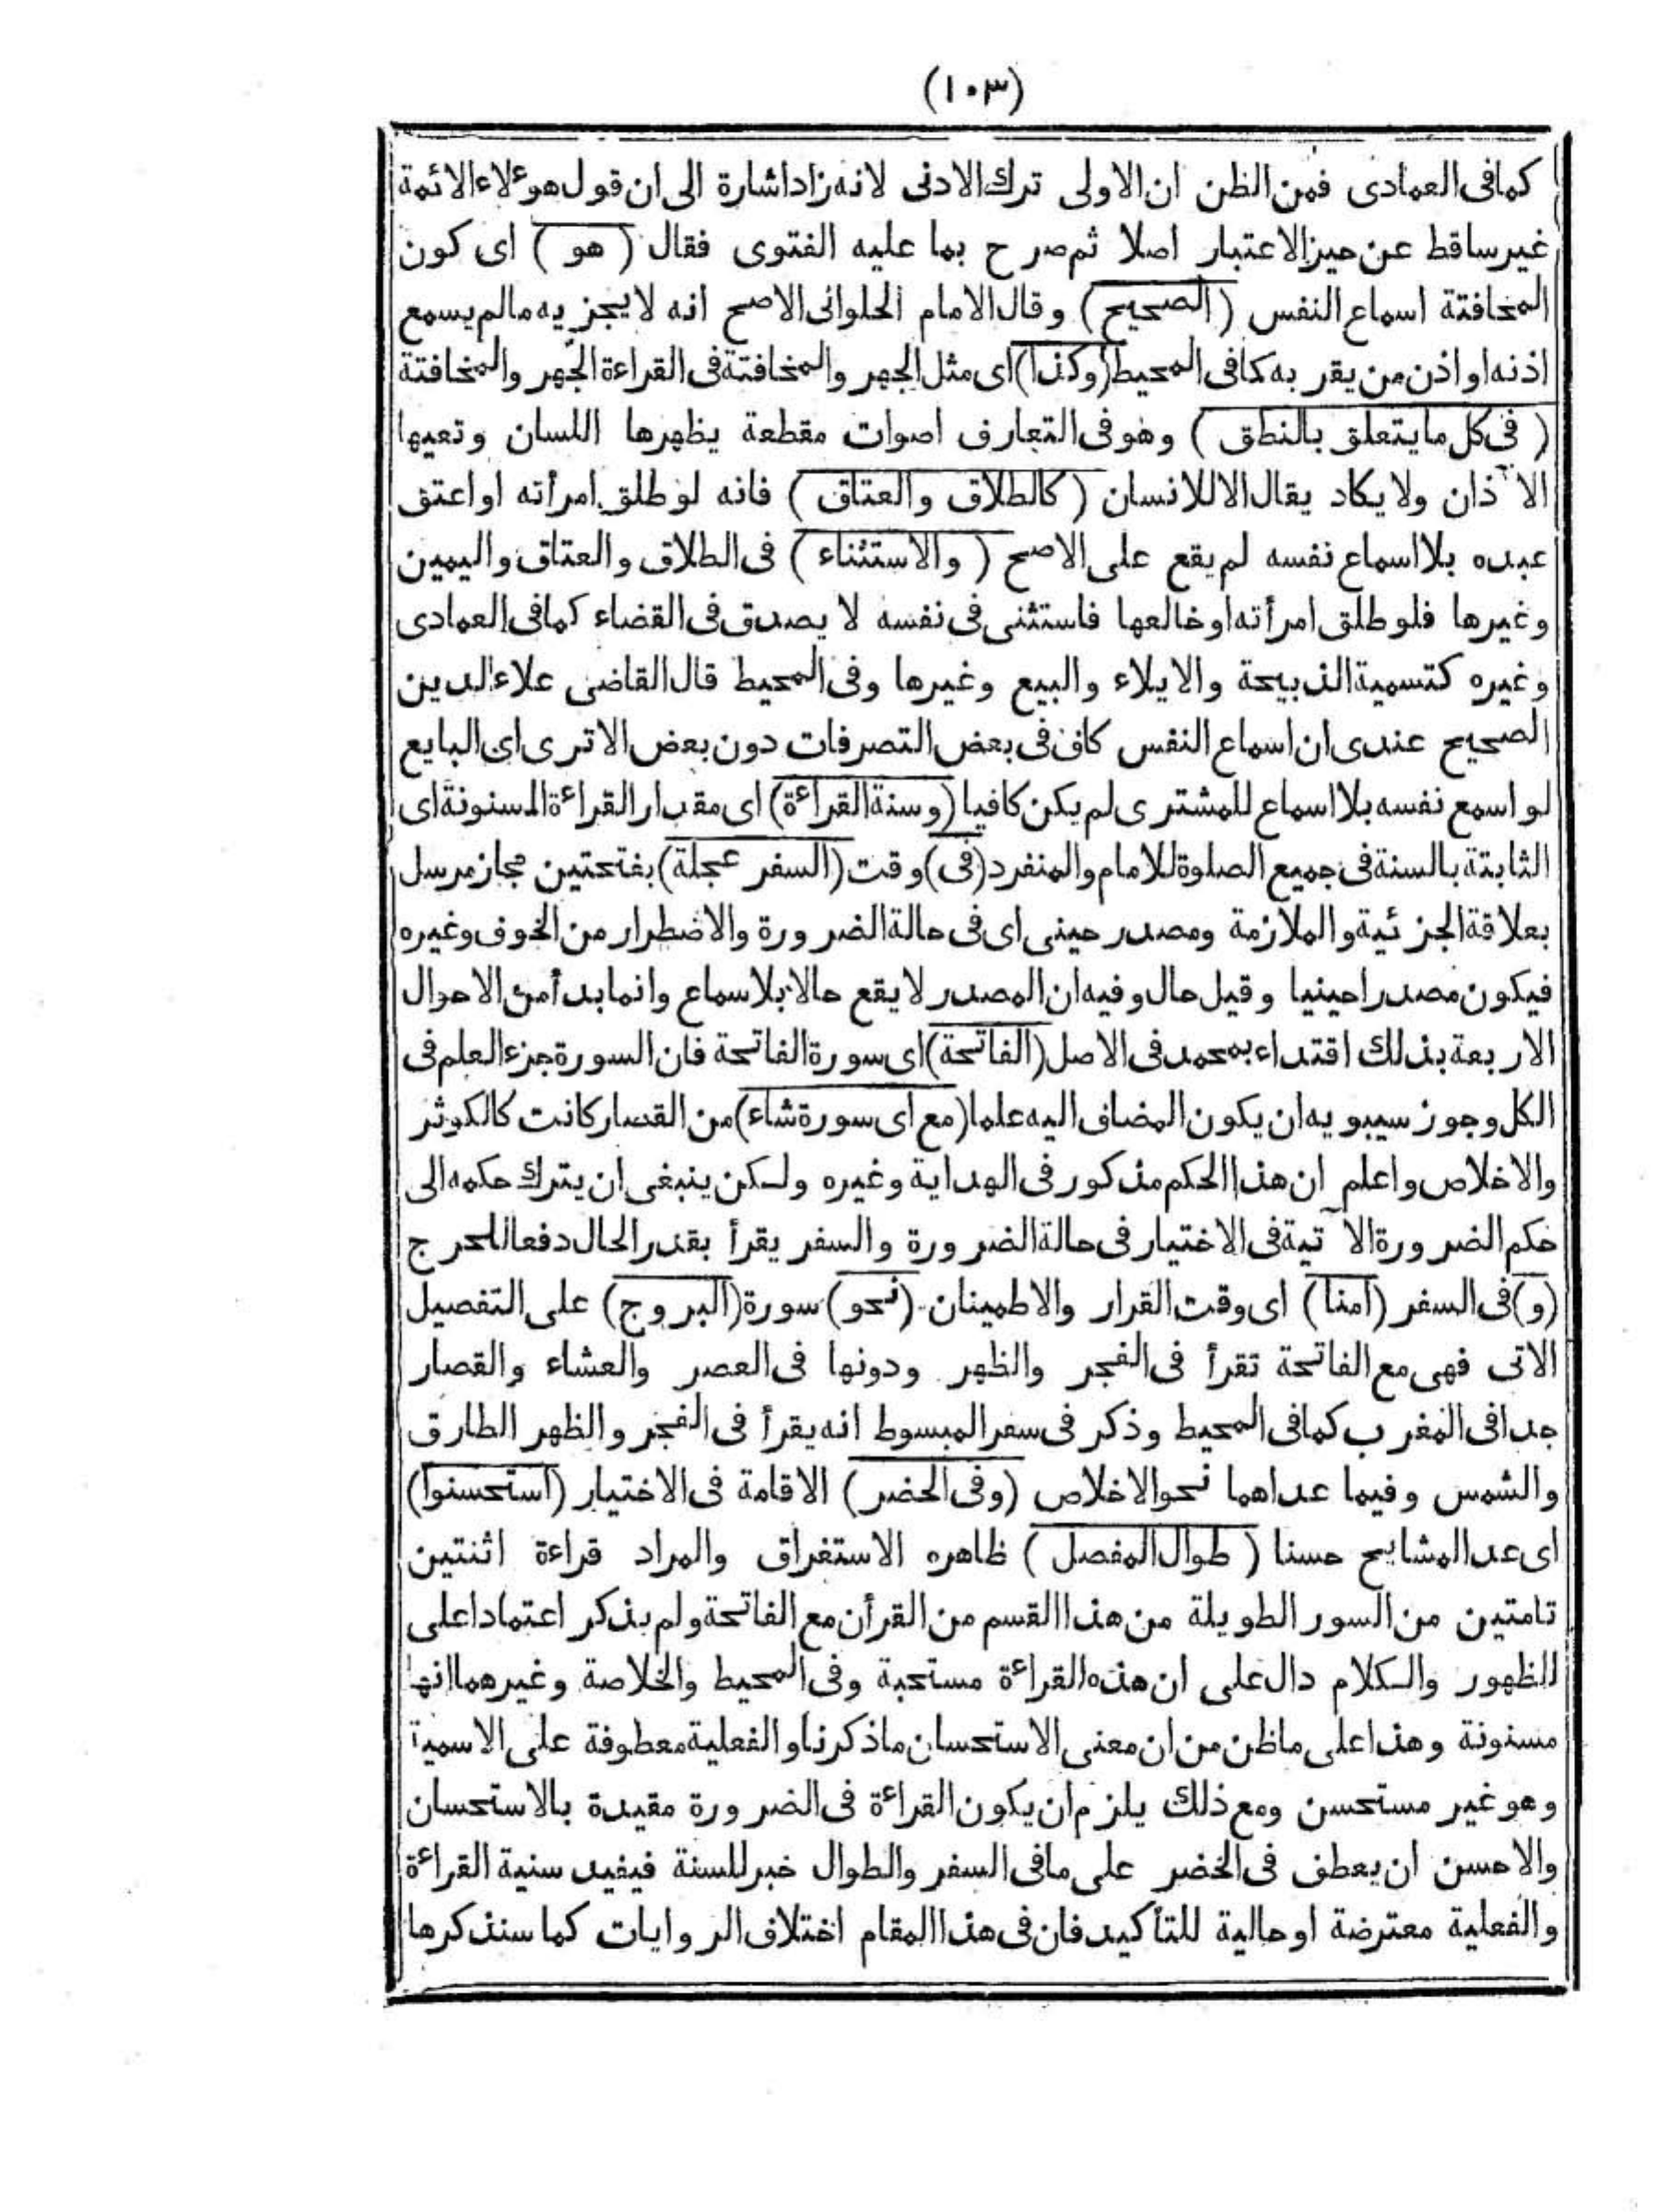 (١٠٣)
كمافى العمادى فمن الظن ان الاولى ترك الادنى لانه زاد اشارة الى ان قول هوءلاء الائمة
غير ساقط عن حيز الاعتبار اصلا ثم صرح بما عليه الفتوى فقال ( هو ) اى كون
المخافتة اسماع النفس ( الصحيح ) وقال الامام الحلوانى الاصح انه لايجزيه مالم يسمع
اذنه او اذن من يقربه كافى المحيط (وكذا) اى مثل الجهر والمخافتة فى القراءة الجهر والمخافتة
( فى كل مايتعلق بالنطق ) وهو فى التعارف اصوات مقطعة يظهرها اللسان وتعيها
الآذان ولايكاد يقال الا للانسان ( كالطلاق والعتاق ) فانه لو طلق امرأته او اعتق
عبده بلا اسماع نفسه لم يقع على الاصح ( والاستثناء ) فى الطلاق والعتاق واليمين
وغيرها فلو طلق امرأته او خالعها فاستثنى فى نفسه لا يصدق فى القضاء كمافى العمادى
وغيره كتسمية الذبيحة والايلاء والبيع وغيرها وفى المحيط قال القاضى علاء الدين
الصحيح عندى ان اسماع النفس كاف فى بعض التصرفات دون بعض الاترى ان البايع
لو اسمع نفسه بلا اسماع للمشترى لم يكن كافيا (وسنة القراءة) اى مقدار القراءة المسنونة اى
الثابتة بالسنة فى جميع الصلوة للامام والمنفرد (فى) وقت (السفر عجلة) بفتحتين مجاز مرسل
بعلاقة الجزئية والملازمة ومصدر حينى اى فى حالة الضرورة والاضطرار من الخوف وغيره
فيكون مصدرا حينيا وقيل حال وفيه ان المصدر لايقع حالا بلا سماع وانما بدأ من الاحوال
الاربعة بذلك اقتداء بمحمد فى الاصل (الفاتحة) اى سورة الفاتحة فان السورة جزء العلم فى
الكل وجوز سيبويه ان يكون المضاف اليه علما (مع اى سورة شاء) من القصار كانت كالكوثر
والاخلاص واعلم ان هذا الحكم مذكور فى الهداية وغيره ولكن ينبغى ان يترك حكمه الى
حكم الضرورة الآتية فى الاختيار فى حالة الضرورة والسفر يقرأ بقدر الحال دفعا للحرج
(و) فى السفر (امنا) اى وقت القرار والاطمينان (نحو) سورة (البروج) على التفصيل
الاتى فهى مع الفاتحة تقرأ فى الفجر والظهر ودونها فى العصر والعشاء والقصار
جدا فى المغرب كمافى المحيط وذكر فى سفر المبسوط انه يقرأ فى الفجر والظهر الطارق
والشمس وفيما عداهما نحو الاخلاص (وفى الحضر) الاقامة فى الاختيار (استحسنوا)
اى عد المشايخ حسنا ( طوال المفصل ) ظاهره الاستغراق والمراد قراءة اثنتين
تامتين من السور الطويلة من هذا القسم من القرأن مع الفاتحة ولم يذكر اعتمادا على
الظهور والكلام دال على ان هذه القراءة مستحبة وفى المحيط والخلاصة وغيرهما انها
مسنونة وهذا على ماظن من ان معنى الاستحسان ماذكرنا والفعلية معطوفة على الاسمية
وهو غير مستحسن ومع ذلك يلزم ان يكون القراءة فى الضرورة مقيدة بالاستحسان
والاحسن ان يعطف فى الحضر على مافى السفر والطوال خبر للسنة فيفيد سنية القراءة
والفعلية معترضة او حالية للتأكيد فان فى هذا المقام اختلاف الروايات كما سنذكرها